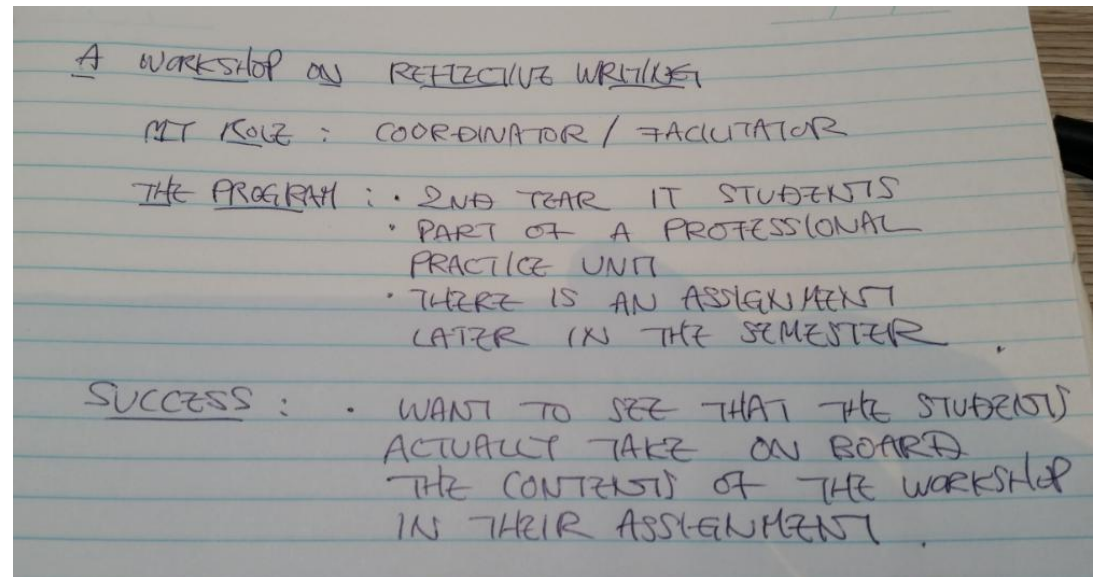 A WORKSHOP ON REFLECTIVE WRITING
MY ROLE : COORDINATOR / FACILITATOR
THE PROGRAM : · 2ND YEAR IT STUDENTS
· PART OF A PROFESSIONAL
PRACTICE UNIT
· THERE IS AN ASSIGNMENT
LATER IN THE SEMESTER .
SUCCESS : · WANT TO SEE THAT THE STUDENTS
ACTUALLY TAKE ON BOARD
THE CONTENTS OF THE WORKSHOP
IN THEIR ASSIGNMENT .